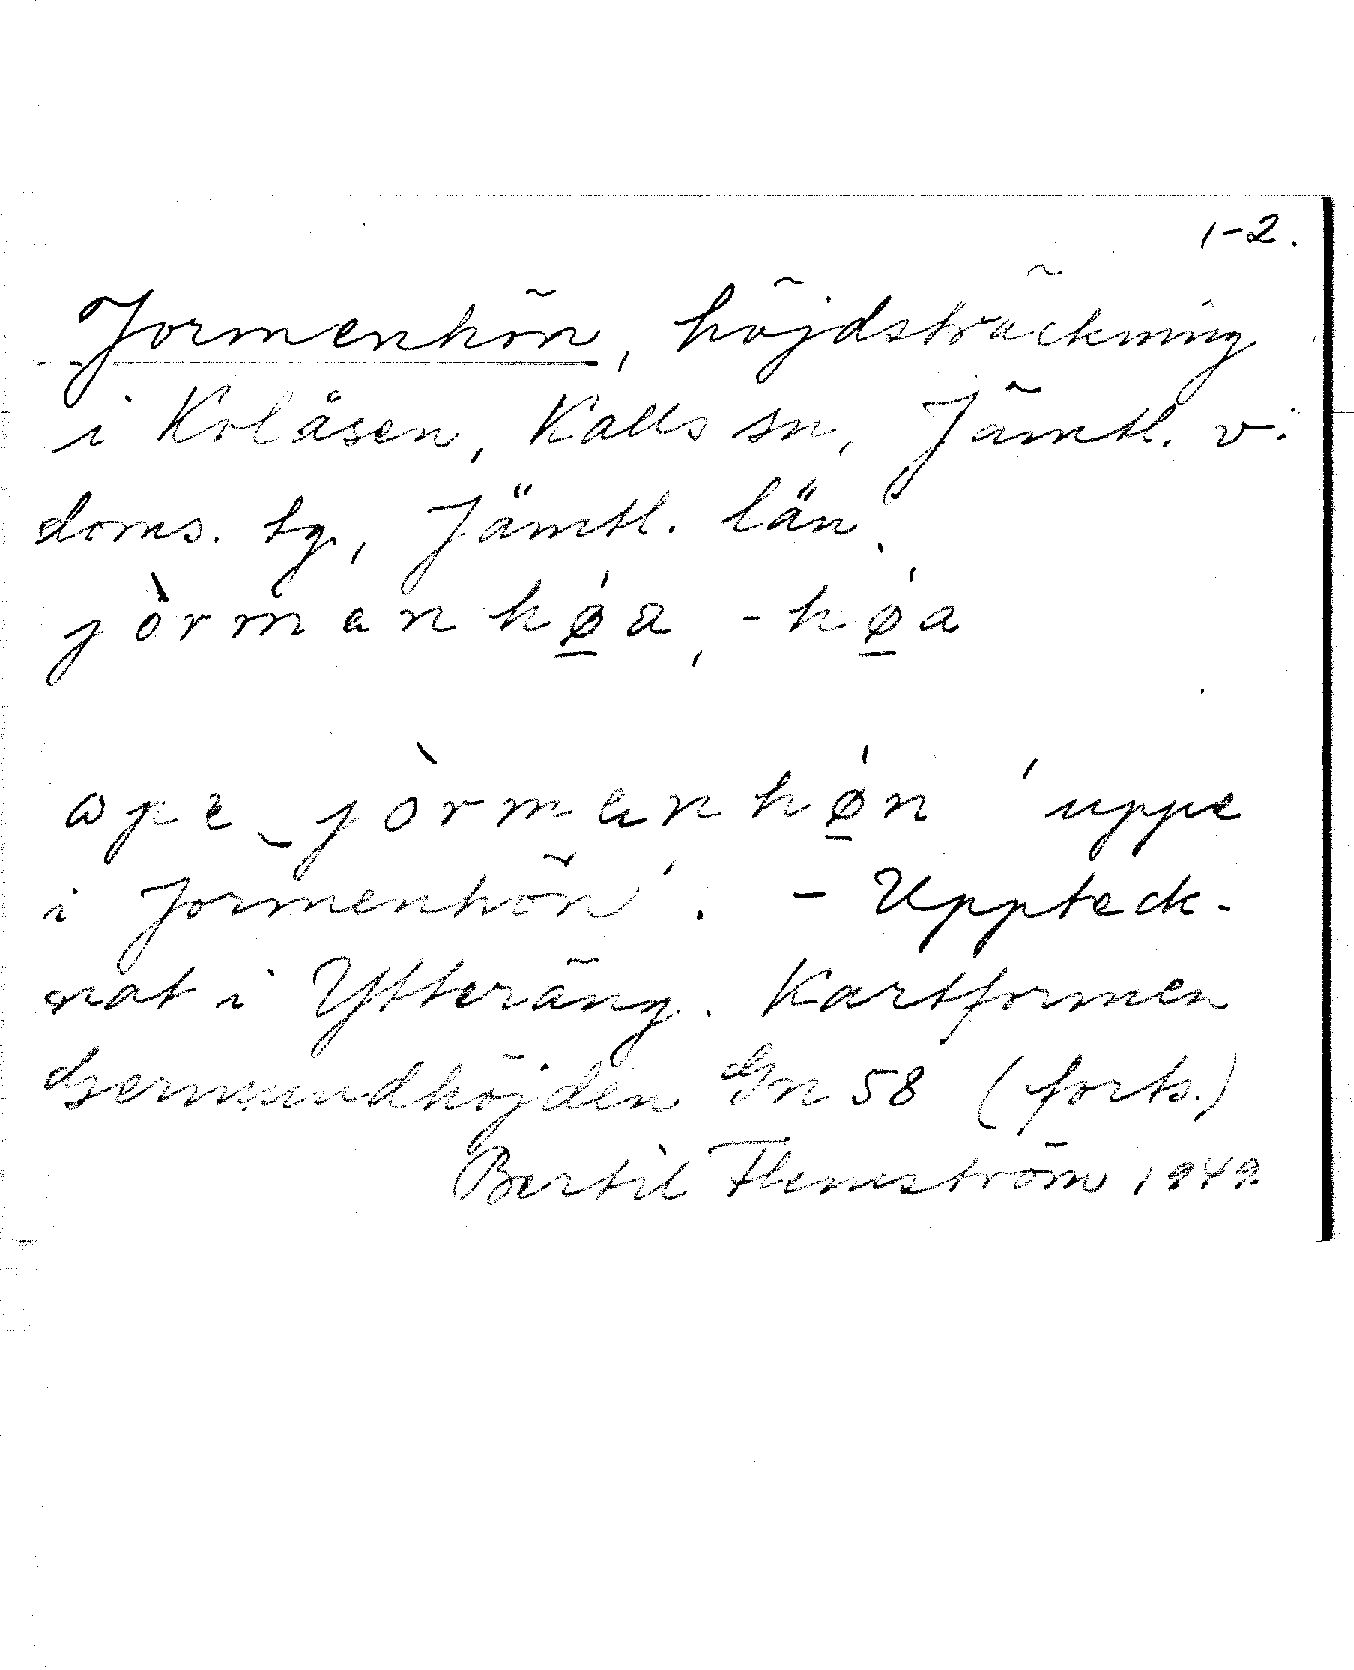 1-2.
Jormenhön, höjdsträckning
i Kolåsen, Kalls sn, Jämtl. v:
doms. tg, Jämtl. län.
jòrmanhǿa, -hǿa
ɷpe jòrmanhǿn 'uppe
i Jormenhön'. - Uppteck-
nat i Ytteräng. Kartformen
Germundhöjden Gn 58 (forts.)
Bertil Flemström 1949.